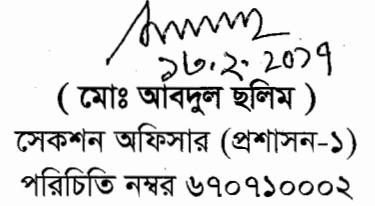 ১৬.২.২০১৭
( মোঃ আবদুল ছলিম )
সেকশন অফিসার (প্রশাসন-১)
পরিচিতি নম্বর ৬৭০৭১০০০২